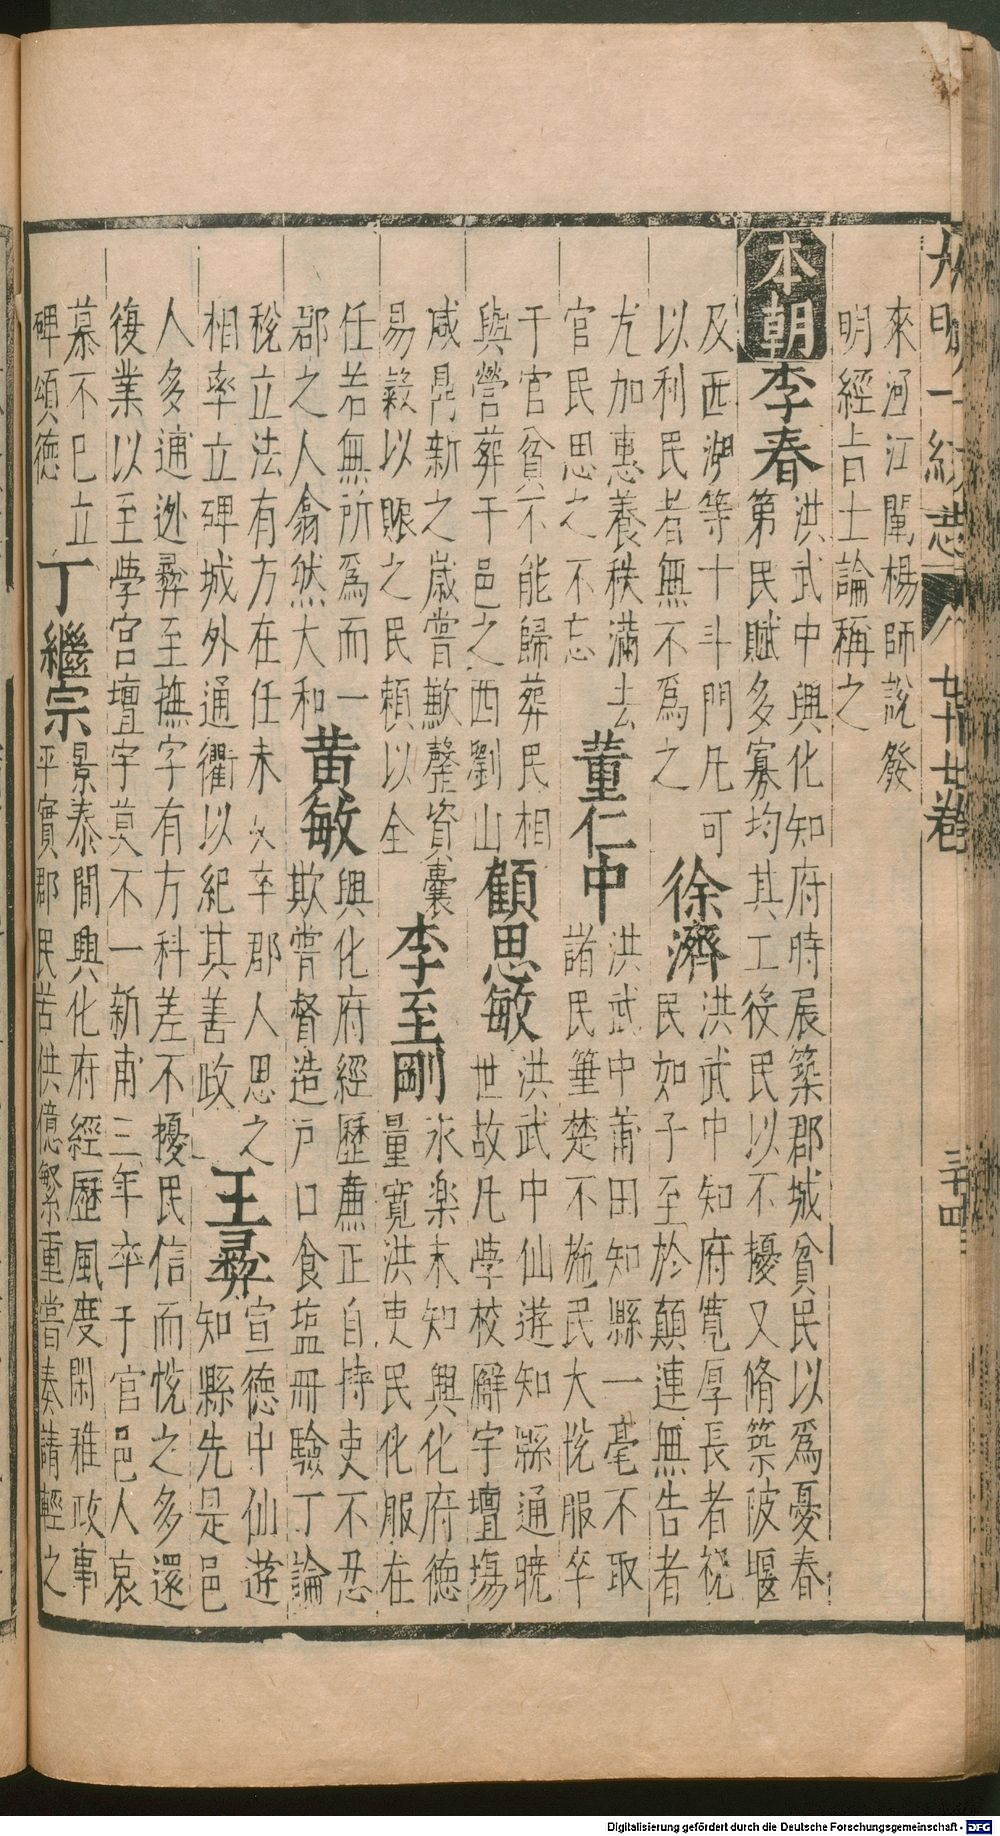 大明一統志 八七十七卷 三十四
來河江閩楊師說發
明經旨士論稱之
本朝
李春
洪武中興化知府時展築郡城貧民以爲憂春
第民賦多寡均其工役民以不擾又脩築陂堰
及西湖等十斗門凡可
以利民者無不爲之
徐濟
洪武中知府寬厚長者視
民如子至於顛連無告者
尤加惠養秩滿去
官民思之不忘
董仁中
洪武中莆田知縣一毫不取
諸民箠楚不施民大悅服卒
于官貧不能歸葬民相
與營葬于邑之西劉山
顧思敏
洪武中仙遊知縣通曉
世故凡學校廨宇壇場
咸鼎新之歲嘗歉罄資囊
易穀以賑之民賴以全
李至剛
永樂末知興化府德
量寬洪吏民化服在
任若無所爲而一
郡之人翕然大和
黃敏
興化府經歷廉正自持吏不忍
欺嘗督造戶口食塩冊驗丁論
稅立法有方在任未久卒郡人思之
相率立碑城外通衢以紀其善政
王彛
宣德中仙遊
知縣先是邑
人多逋逃彛至撫字有方科差不擾民信而悅之多還
復業以至學宮壇宇莫不一新甫三年卒于官邑人哀
慕不已立
碑頌德
丁繼宗
景泰間興化府經歷風度閑雅政事
平實郡民苦供億繁重嘗奏請輕之
Digitalisierung gefördert durch die Deutsche Forschungsgemeinschaft - DFG